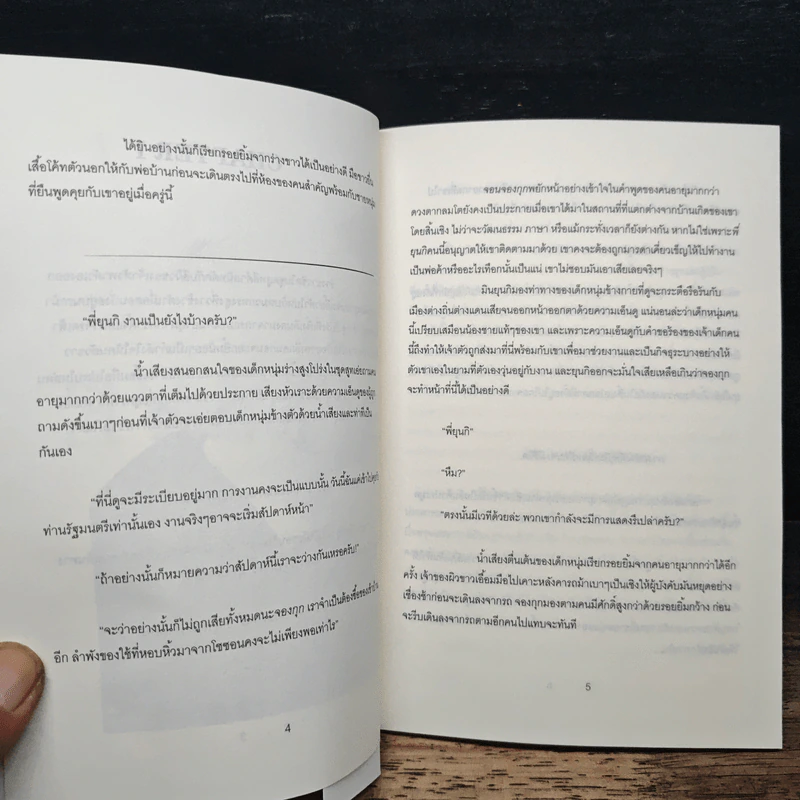 ได้ยินอย่างนั้นก็เรียกรอยยิ้มจากร่างขาวได้เป็นอย่างดี มือขาวยื่น
เสื้อโค้ทตัวนอกให้กับพ่อบ้านก่อนจะเดินตรงไปที่ห้องของคนสำคัญพร้อมกับชายหนุ่ม
ที่ยืนพูดคุยกับเขาอยู่เมื่อครู่นี้
“พี่ยุนกิ งานเป็นยังไงบ้างครับ?”
น้ำเสียงสนอกสนใจของเด็กหนุ่มร่างสูงโปร่งในชุดสูทเอ่ยถามคน
อายุมากกว่าด้วยแววตาที่เต็มไปด้วยประกาย เสียงหัวเราะด้วยความเอ็นดูของผู้ถูก
ถามดังขึ้นเบาๆก่อนที่เจ้าตัวจะเอ่ยตอบเด็กหนุ่มข้างตัวด้วยน้ำเสียงและท่าทีเป็น
กันเอง
“ที่นี่ดูจะมีระเบียบอยู่มาก การงานคงจะเป็นแบบนั้น วันนี้ฉันแค่เข้าไป
ท่านรัฐมนตรีเท่านั้นเอง งานจริงๆอาจจะเริ่มสัปดาห์หน้า”
“ถ้าอย่างนั้นก็หมายความว่าสัปดาห์นี้เราจะว่างกันเหรอครับ!”
“จะว่าอย่างนั้นก็ไม่ถูกเสียทั้งหมดนะจองกุก เราจำเป็นต้องซื้อของเข้าบ้าน
อีก ลำพังของใช้ที่หอบหิ้วมาจากโซซอนคงจะไม่เพียงพอเท่าไร”
4
จอนจองกุกพยักหน้าอย่างเข้าใจในคำพูดของคนอายุมากกว่า
ดวงตากลมโตยังคงเป็นประกายเมื่อเขาได้มาในสถานที่ที่แตกต่างจากบ้านเกิดของเขา
โดยสิ้นเชิง ไม่ว่าจะวัฒนธรรม ภาษา หรือแม้กระทั่งเวลาก็ยังต่างกัน หากไม่ใช่เพราะพี่
ยุนกิคนนี้อนุญาตให้เขาติดตามมาด้วย เขาคงจะต้องถูกมารดาเคี่ยวเข็ญให้ไปทำงาน
เป็นพ่อค้าหรืออะไรเทือกนั้นเป็นแน่ เขาไม่ชอบมันเอาเสียเลยจริงๆ
มินยุนกิมองท่าทางของเด็กหนุ่มข้างกายที่ดูจะกระดือรือร้นกับ
เมืองต่างถิ่นต่างแดนเสียจนออกหน้าออกตาด้วยความเอ็นดู แน่นอนล่ะว่าเด็กหนุ่มคน
นี้เปรียบเสมือนน้องชายแท้ๆของเขา และเพราะความเอ็นดูกับคำขอร้องของเจ้าเด็กคน
นี้ถึงทำให้เจ้าตัวถูกส่งมาที่นี่พร้อมกับเขาเพื่อมาช่วยงานและเป็นกิจธุระบางอย่างให้
ตัวเขาเองในยามที่ตัวเองวุ่นอยู่กับงาน และยุนกิออกจะมั่นใจเสียเหลือเกินว่าจองกุก
จะทำหน้าที่นี้ได้เป็นอย่างดี
“พี่ยุนกิ”
“หืม?”
“ตรงนั้นมีเวทีด้วยล่ะ พวกเขากำลังจะมีการแสดงรึเปล่าครับ?”
น้ำเสียงตื่นเต้นของเด็กหนุ่มเรียกรอยยิ้มจากคนอายุมากกว่าได้อีก
ครั้ง เจ้าของผิวขาวเอื้อมมือไปเคาะหลังคารถม้าเบาๆเป็นเชิงให้ผู้บังคับมันหยุดอย่าง
เชื่องช้าก่อนจะเดินลงจากรถ จองกุกมองตามคนมีศักดิ์สูงกว่าด้วยรอยยิ้มกว้าง ก่อน
จะรีบเดินลงจากรถตามอีกคนไปแทบจะทันที
5